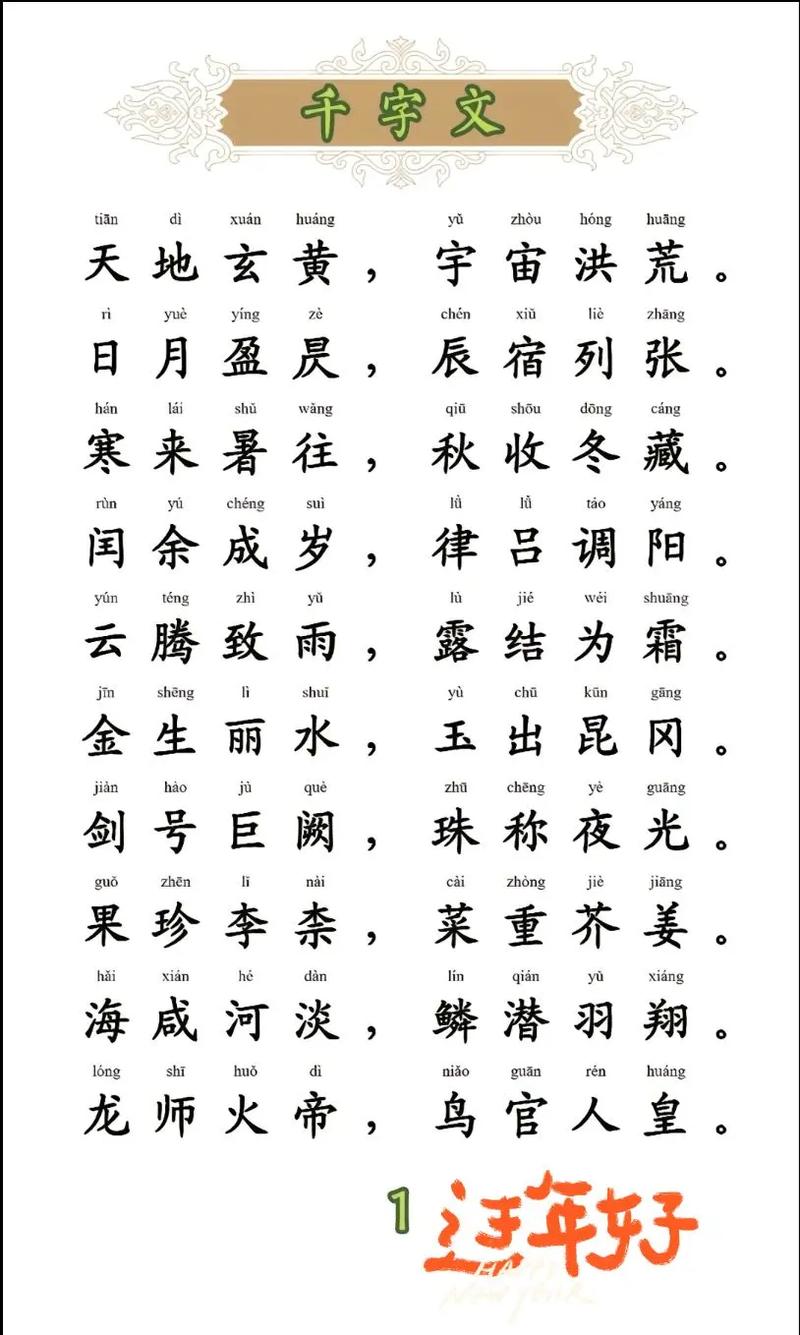 千字文
tiān dì xuán huáng yǔ zhòu hóng huāng
天地玄黄，宇宙洪荒。
rì yuè yíng zè chén xiǔ liè zhāng
日月盈昃，辰宿列张。
hán lái shǔ wǎng qiū shōu dōng cáng
寒来暑往，秋收冬藏。
rùn yú chéng suì lǜ lǚ táo yáng
闰余成岁，律吕调阳。
yún téng zhì yǔ lù jié wéi shuāng
云腾致雨，露结为霜。
jīn shēng lì shuǐ yù chū kūn gāng
金生丽水，玉出昆冈。
jiàn hào jù què zhū chēng yè guāng
剑号巨阙，珠称夜光。
guǒ zhēn lǐ nài cài zhòng jiè jiāng
果珍李柰，菜重芥姜。
hǎi xián hé dàn lín qián yǔ xiáng
海咸河淡，鳞潜羽翔。
lóng shī huǒ dì niǎo guān rén huáng
龙师火帝，鸟官人皇。
1
过年好
HAPPY
NEW YEAR